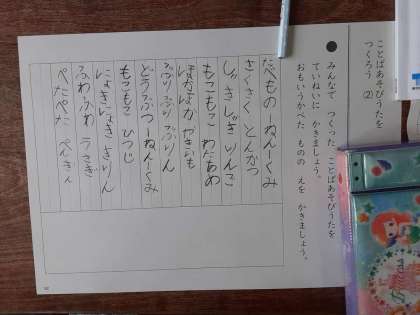 ことばあそびうたを
つくろう (2)
みんなで つくった ことばあそびうたを
ていねいに かきましょう。
おもいうかべた ものの えを かきましょう。
たべもの一ねん一くみ
さくさく とんかつ
しゃきしゃき りんご
もこもこ わたあめ
ほかほか やきいも
ぷりぷり ぷりん
どうぶつ一ねん一くみ
もこもこ ひつじ
にょきにょき きりん
ふわふわ うさぎ
ぺたぺた ぺんぎん